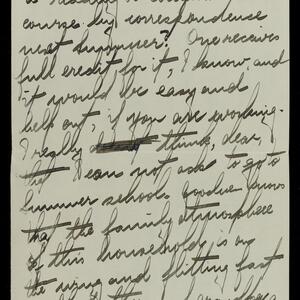 courses by correspondence
next Summer? One receives
full credit for it, I know, and
it would be easy and
help out, if you are working.
I really think, dear,
that I can not ask to go to
Summer school. 
that the family atmosphere
of this household is on
the wing and flitting fast